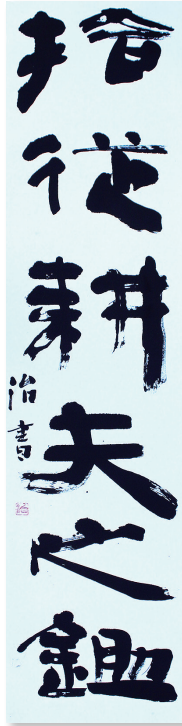 拾從耕夫之鋤
治書